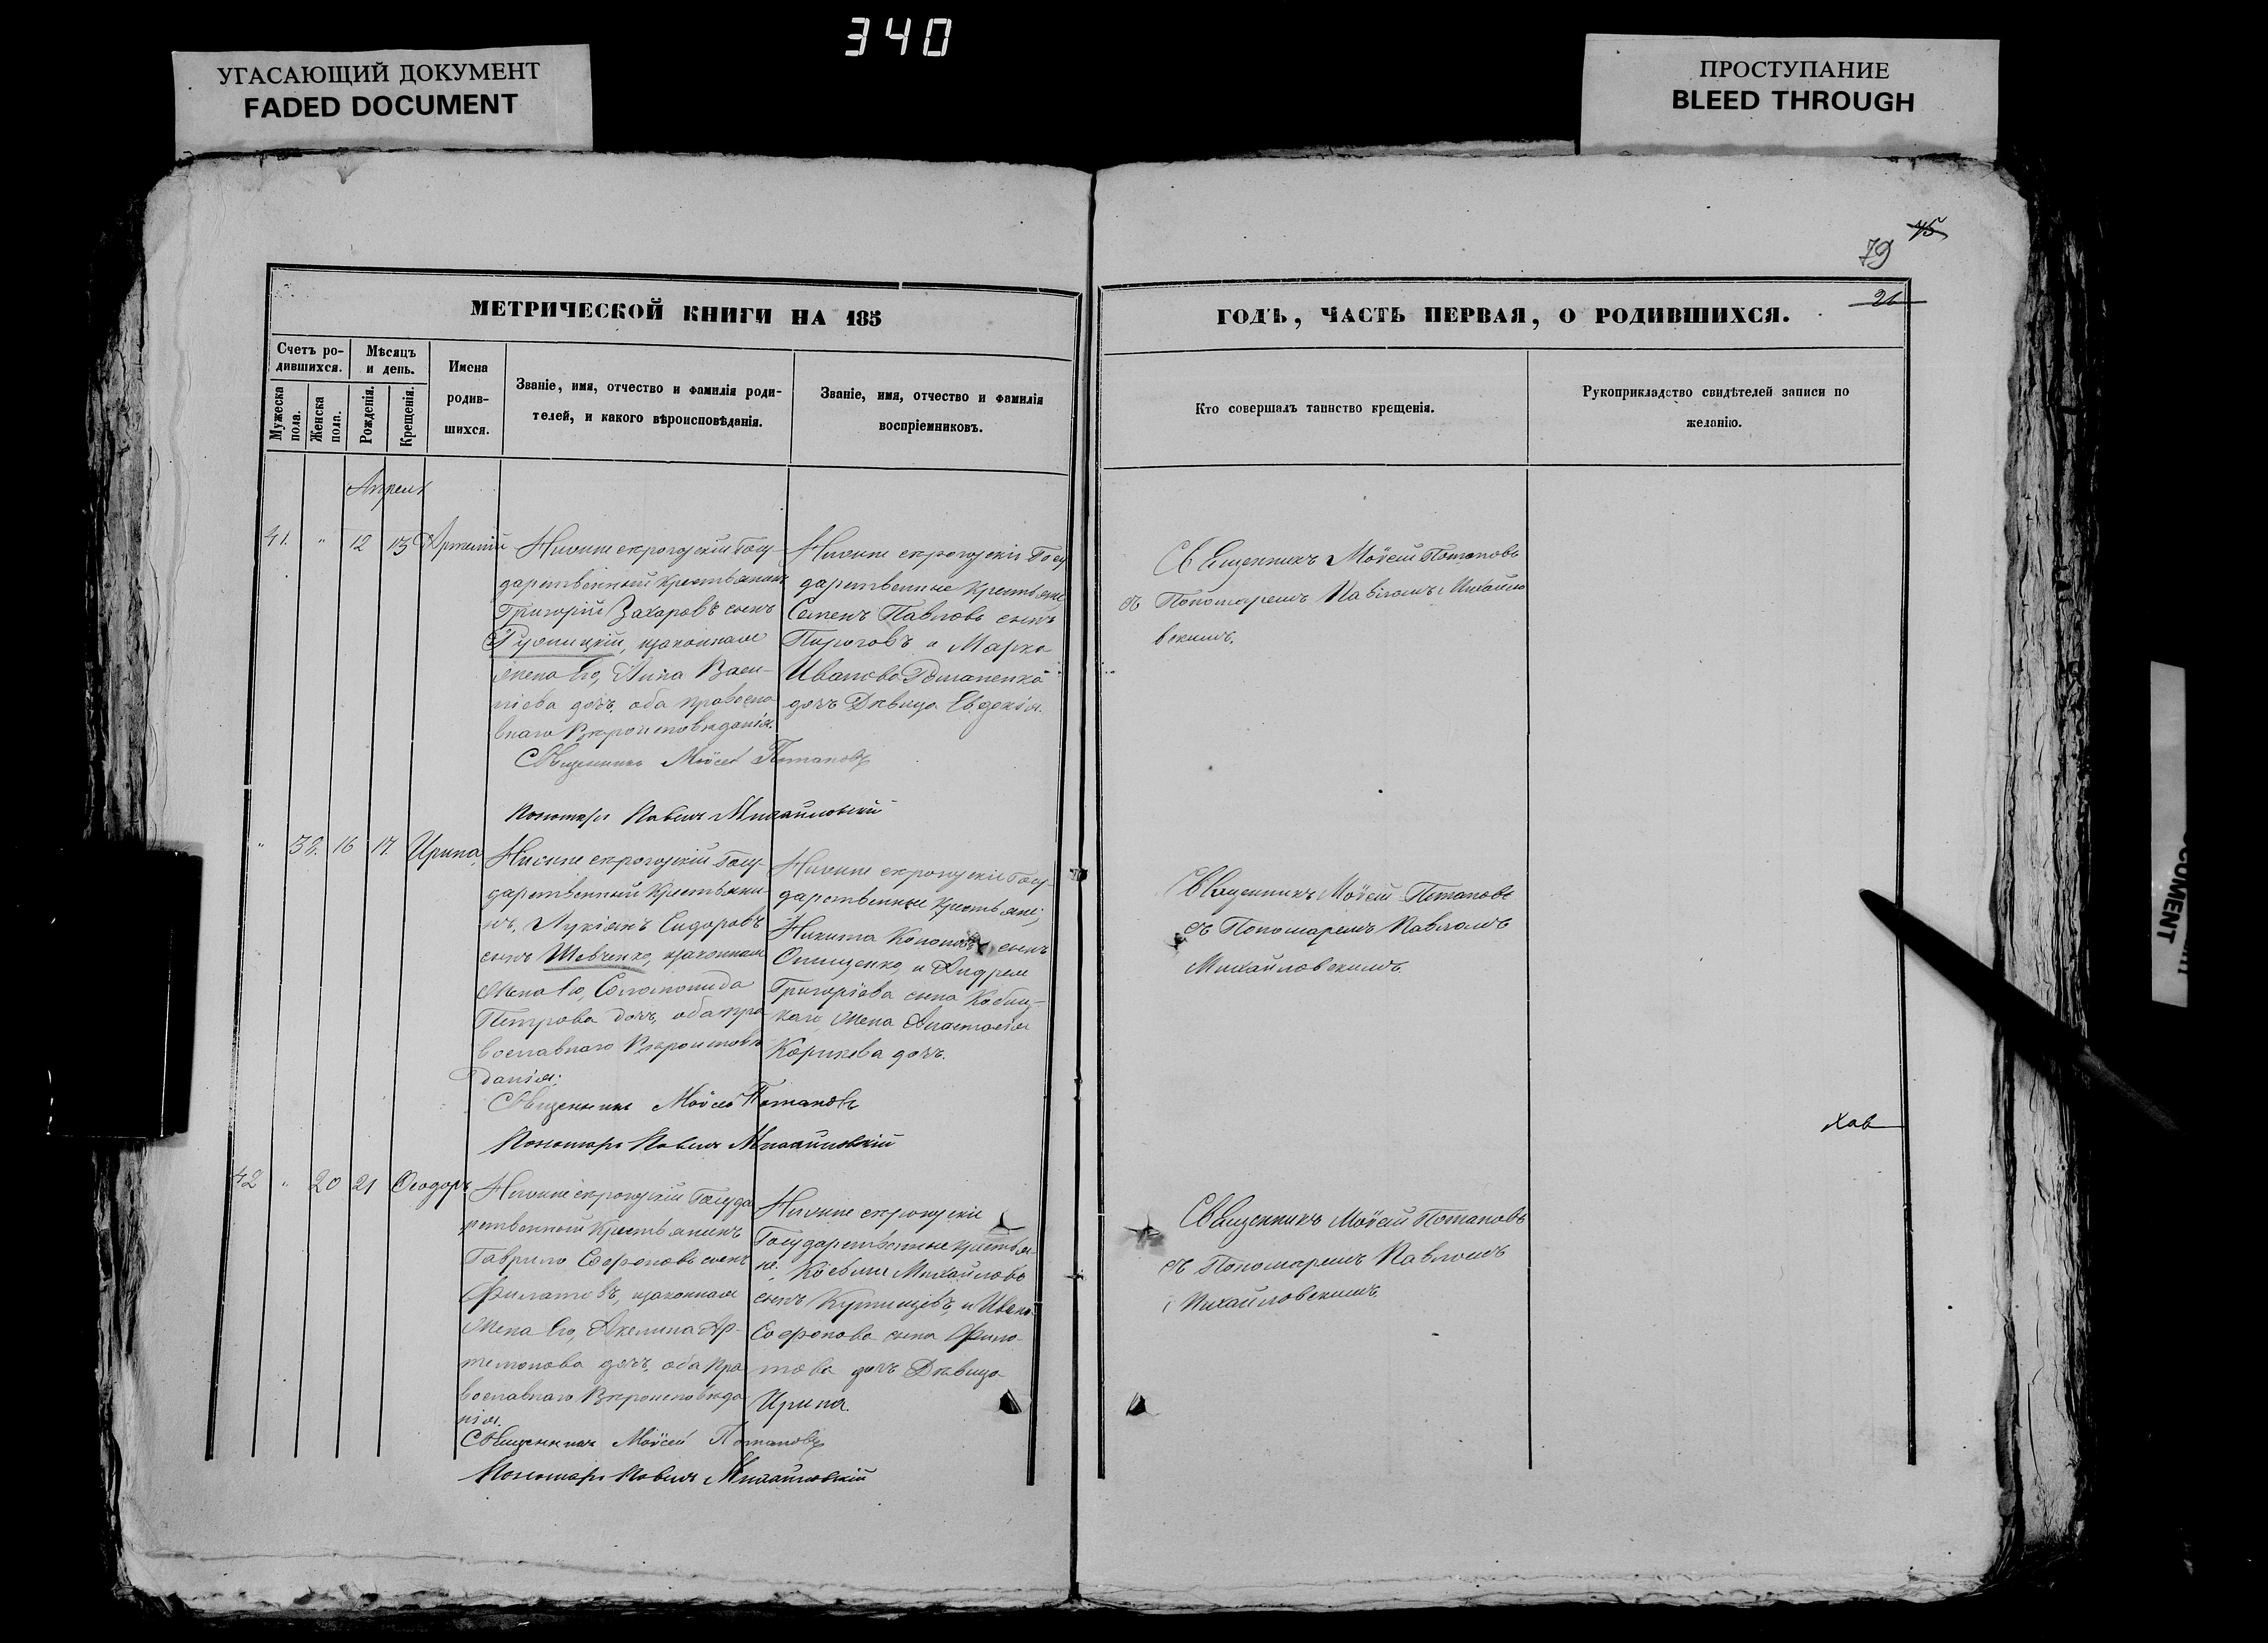 340
УГАСАЮЩИЙ ДОКУМЕНТ
FADED DOCUMENT
ПРОСТУПАНИЕ
BLEED THROUGH
45
79
26
МЕТРИЧЕСКОЙ КНИГИ НА 185
ГОДЪ, ЧАСТЬ ПЕРВАЯ, О РОДИВШИХСЯ.
Счетъ ро-
дившихся.
Мужеска
пола.
Женска
пола.
Мѣсяцъ
и день.
Рожденія.
Крещенія.
Имена
родив-
шихся.
Званіе, имя, отчество и фамилія роди-
телей, и какого вѣроисповѣданія.
Званіе, имя, отчество и фамилія
воспріемниковъ.
Кто совершалъ таинство крещенія.
Рукоприкладство свидѣтелей записи по
желанію.
Апрель
41. " 12 13
Государственный крестьянинъ
Григорій Захаровъ сынъ
законная
жена его, Анна
дочь, оба православнаго вѣроисповѣданія.
Священникъ Мойсей Потаповъ
Пономарь Павелъ Михайловскій
государственные крестьяне,
Семенъ Павловъ сынъ
Пироговъ и Марка
Иванова Романенка
дочь Дѣвица Евдокія.
Священникъ Мойсей Потаповъ
съ Пономаремъ Павломъ Михайло
вскимъ.
" 38. 16 17. Ирина
Государственный крестьяни
нъ, Лукіанъ Сидоровъ
сынъ Шевченко, законная
жена его, Соломонида
Петрова дочь, оба пра
вославнаго вѣроисповѣ
данія.
Священникъ Мойсей Потаповъ
Пономарь Павелъ Михайловскій
государственные крестьяне,
Никита сынъ
Онищенко, и Андрея
Григоріева сына
жена Анастасія
дочь.
Священникъ Мойсей Потаповъ
съ Пономаремъ Павломъ
Михайловскимъ.
Хав
42 " 20 21 Ѳеодоръ
Государственный крестьянинъ
Гаврило Софроновъ сынъ
Филатовъ, законная
жена его, Акелина Ар-
темонова дочь, оба пра
вославнаго вѣроисповѣда
нія.
Священникъ Мойсей Потаповъ
Пономарь Павелъ Михайловскій
Государственные крестья-
не. Михайловъ
сынъ и Ивана
Софронова сына Фила-
това дочь Дѣвица
Ирина.
Священникъ Мойсей Потаповъ
съ Пономаремъ Павломъ
Михайловскимъ.